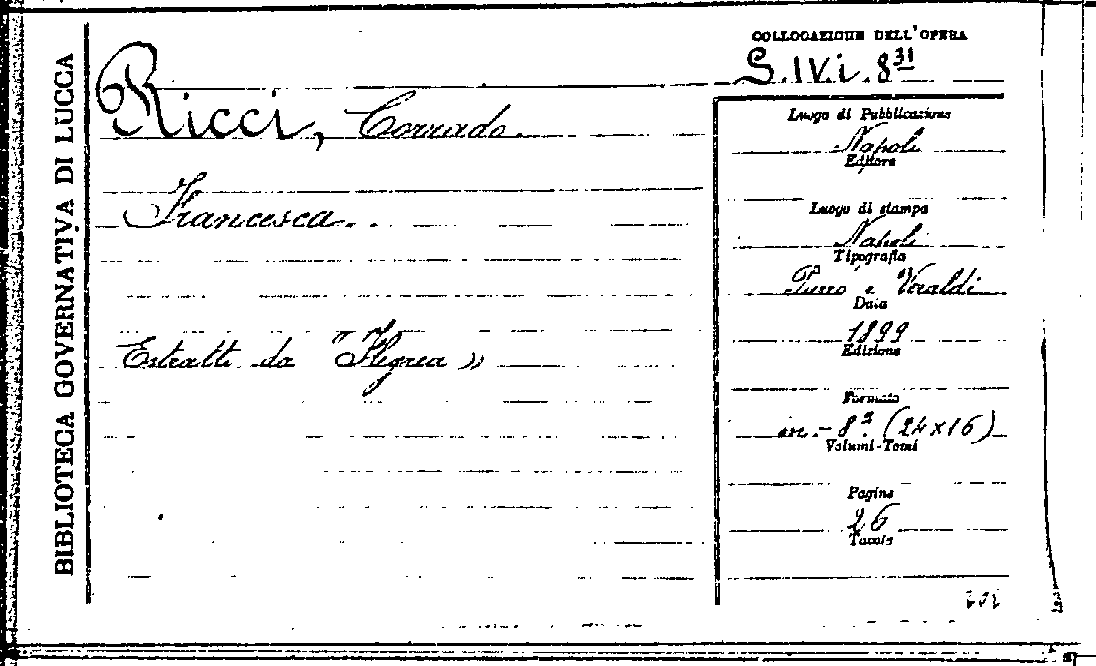 BIBLIOTECA GOVERNATIVA DI LUCCA
COLLOCAZIONE DELL'OPERA
S.IV.i.8³¹
Ricci, Corrado.
Francesca..
Estratto da "Flegrea"
Luogo di Pubblicazione
Napoli
Editore
Luogo di stampa
Napoli
Tipografia
e Veraldi
Data
1899
Edizione
Formato
in-8º (24x16)
Volumi-Tomi
Pagine
26
Tavole